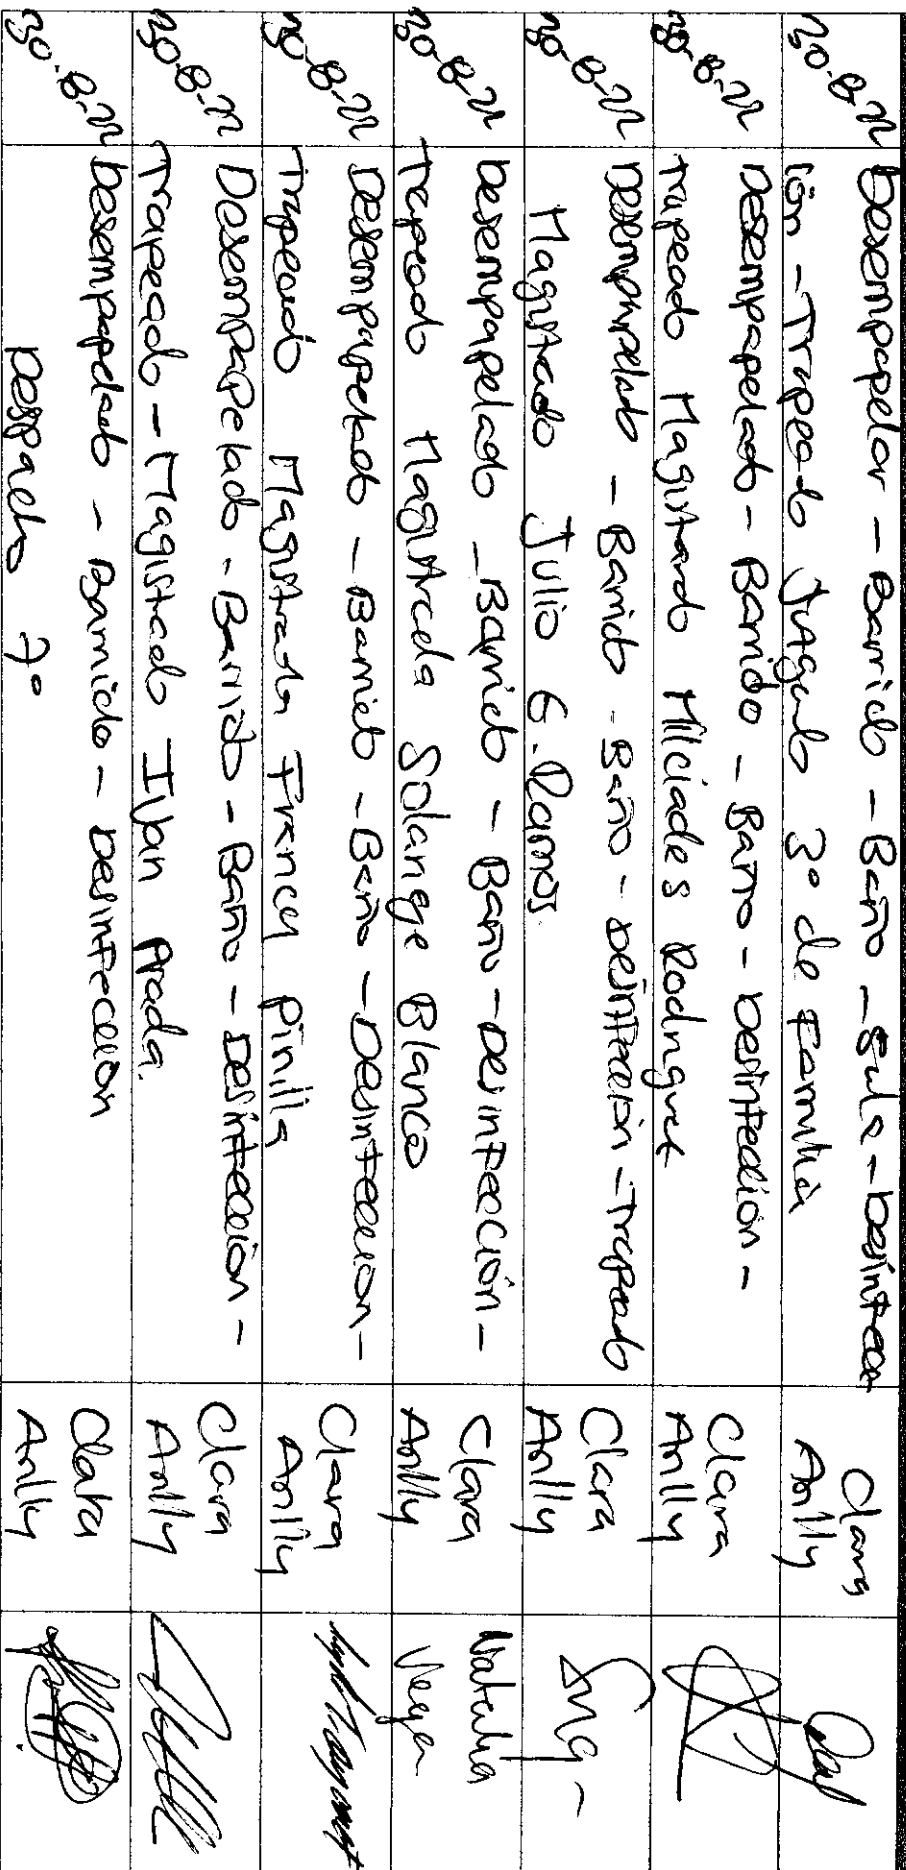 30-8-22 Desempapelar - Barrido - Baño - Sala - Desinfecc Clara
ión - Trapeado Juzgado 3° de Familia Arilly
30-8-22 Desempapelado - Barrido - Baño - Desinfección - Clara
Trapeado Magistrado Milciades Rodriguez Arilly
30-8-22 Desempapelado - Barrido - Baño - Desinfección - Trapeado Clara
Magistrado Julio G. Ramos. Arilly
30-8-22 Desempapelado - Barrido - Baño - Desinfección - Clara Natalia
Trapeado Magistrada Solange Blanco Arilly Vega
30-8-22 Desempapelado - Barrido - Baño - Desinfeccion - Clara
Trapeado Magistrada Francy Pinilla Arilly
30-8-22 Desempapelado - Barrido - Baño - Desinfección - Clara
Trapeado - Magistrado Ivan Prada. Arilly
30-8-22 Desempapelado - Barrido - Desinfeccion Clara
Despacho 7° Arilly